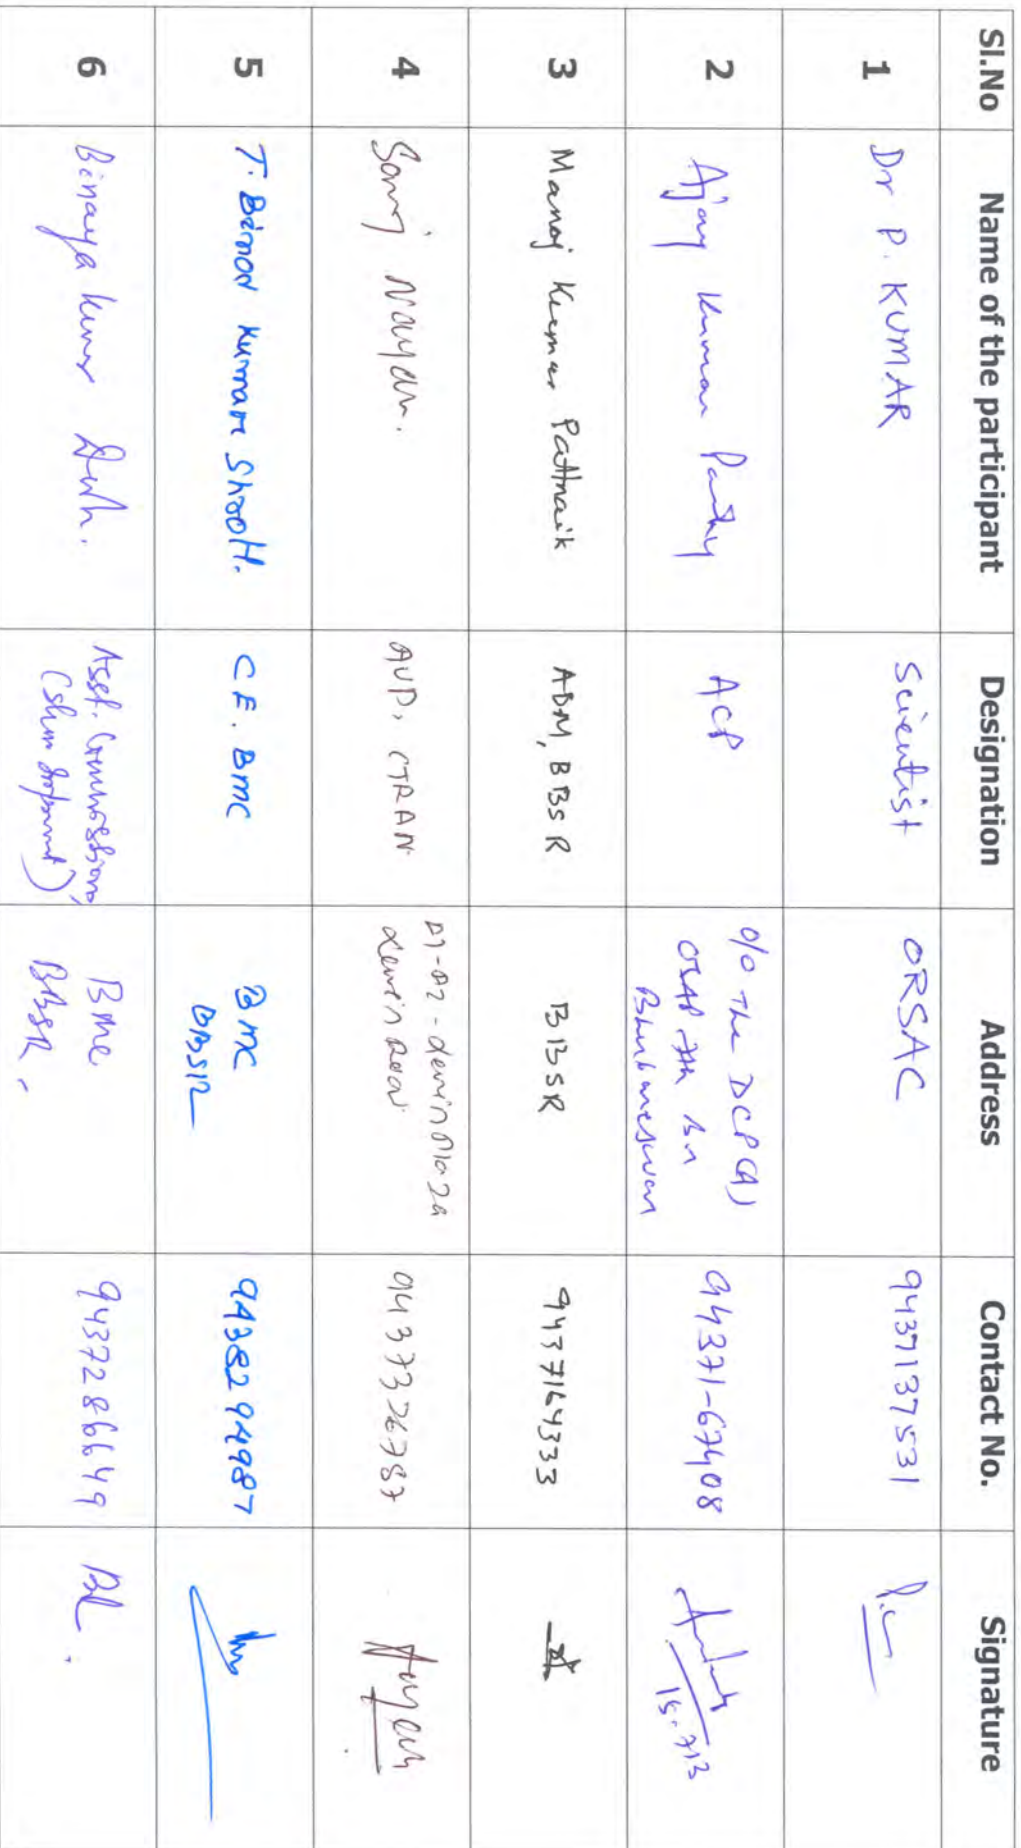 Sl.No Name of the participant Designation Address Contact No. Signature
1 Dr P. KUMAR Scientist ORSAC 9437137531
2 Ajay Kumar ACP O/O The DCP(A)
OSAP 7th Bn
Bhubaneswar
94371-67408
15.713
3 Manoj Kumar Pattnaik ADM, BBSR BBSR 9437164333
4 Nayan. AVP, CTRAN
Plaza
9437376787 Nayan
5 T. Binod Kumar C E. BMC BMC
BBSR
9438294987
6 Binaya Kumar Asst. Commissioner,
(Slum)
BMC
BBSR,
9437286649